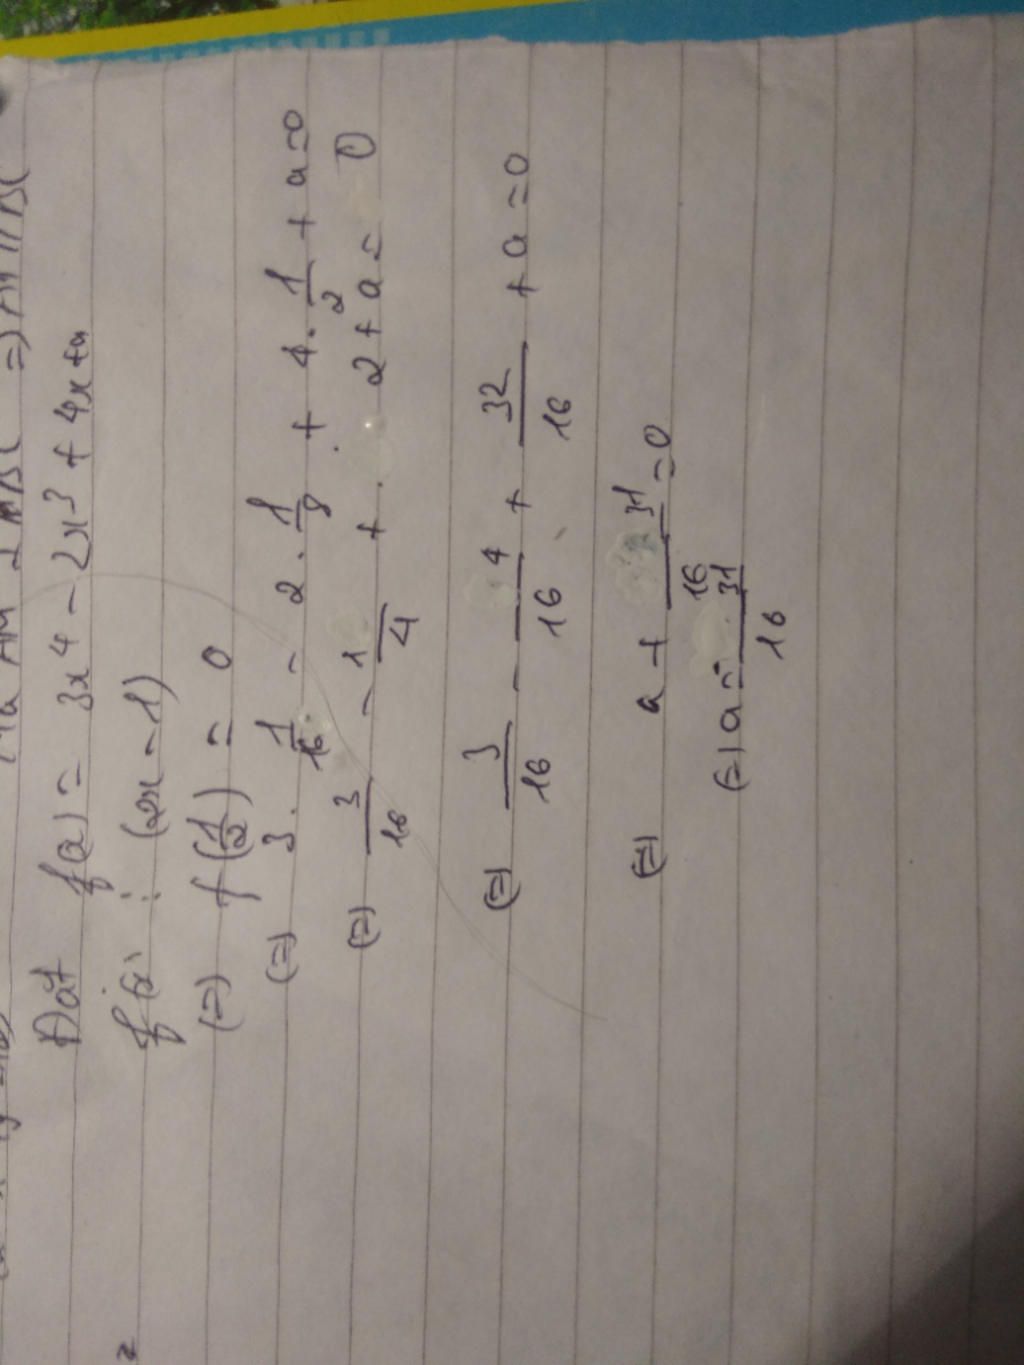 AM ⊥ BC => AM // BC
Đặt f(x) = 3x⁴ - 2x³ + 4x + a
f(x) ⋮ (2x - 1)
(=) f(1/2) = 0
(=) 3 . 1/16 - 2 . 1/8 + 4 . 1/2 + a = 0
(=) 3/16 - 1/4 + 2 + a = 0
(=) 3/16 - 4/16 + 32/16 + a = 0
(=) a + 31/16 = 0
(=) a = - 31/16